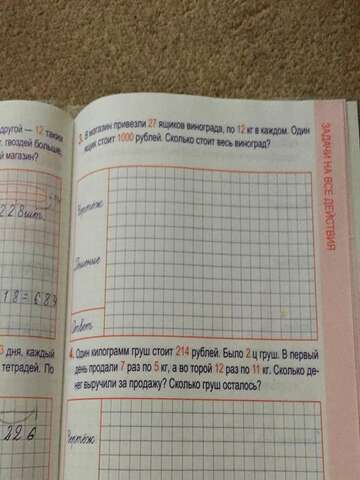 другой — 12 таких
г. гвоздей больше,
й магазин?
228шт.
18 = 684
3 дня, каждый
тетрадей. По
226
3. В магазин привезли 27 ящиков винограда, по 12 кг в каждом. Один
ящик стоит 1000 рублей. Сколько стоит весь виноград?
Чертёж
Решение
Ответ
4. Один килограмм груш стоит 214 рублей. Было 2 ц груш. В первый
день продали 7 раз по 5 кг, а во второй 12 раз по 11 кг. Сколько де-
нег выручили за продажу? Сколько груш осталось?
Чертёж
ЗАДАЧИ НА ВСЕ ДЕЙСТВИЯ